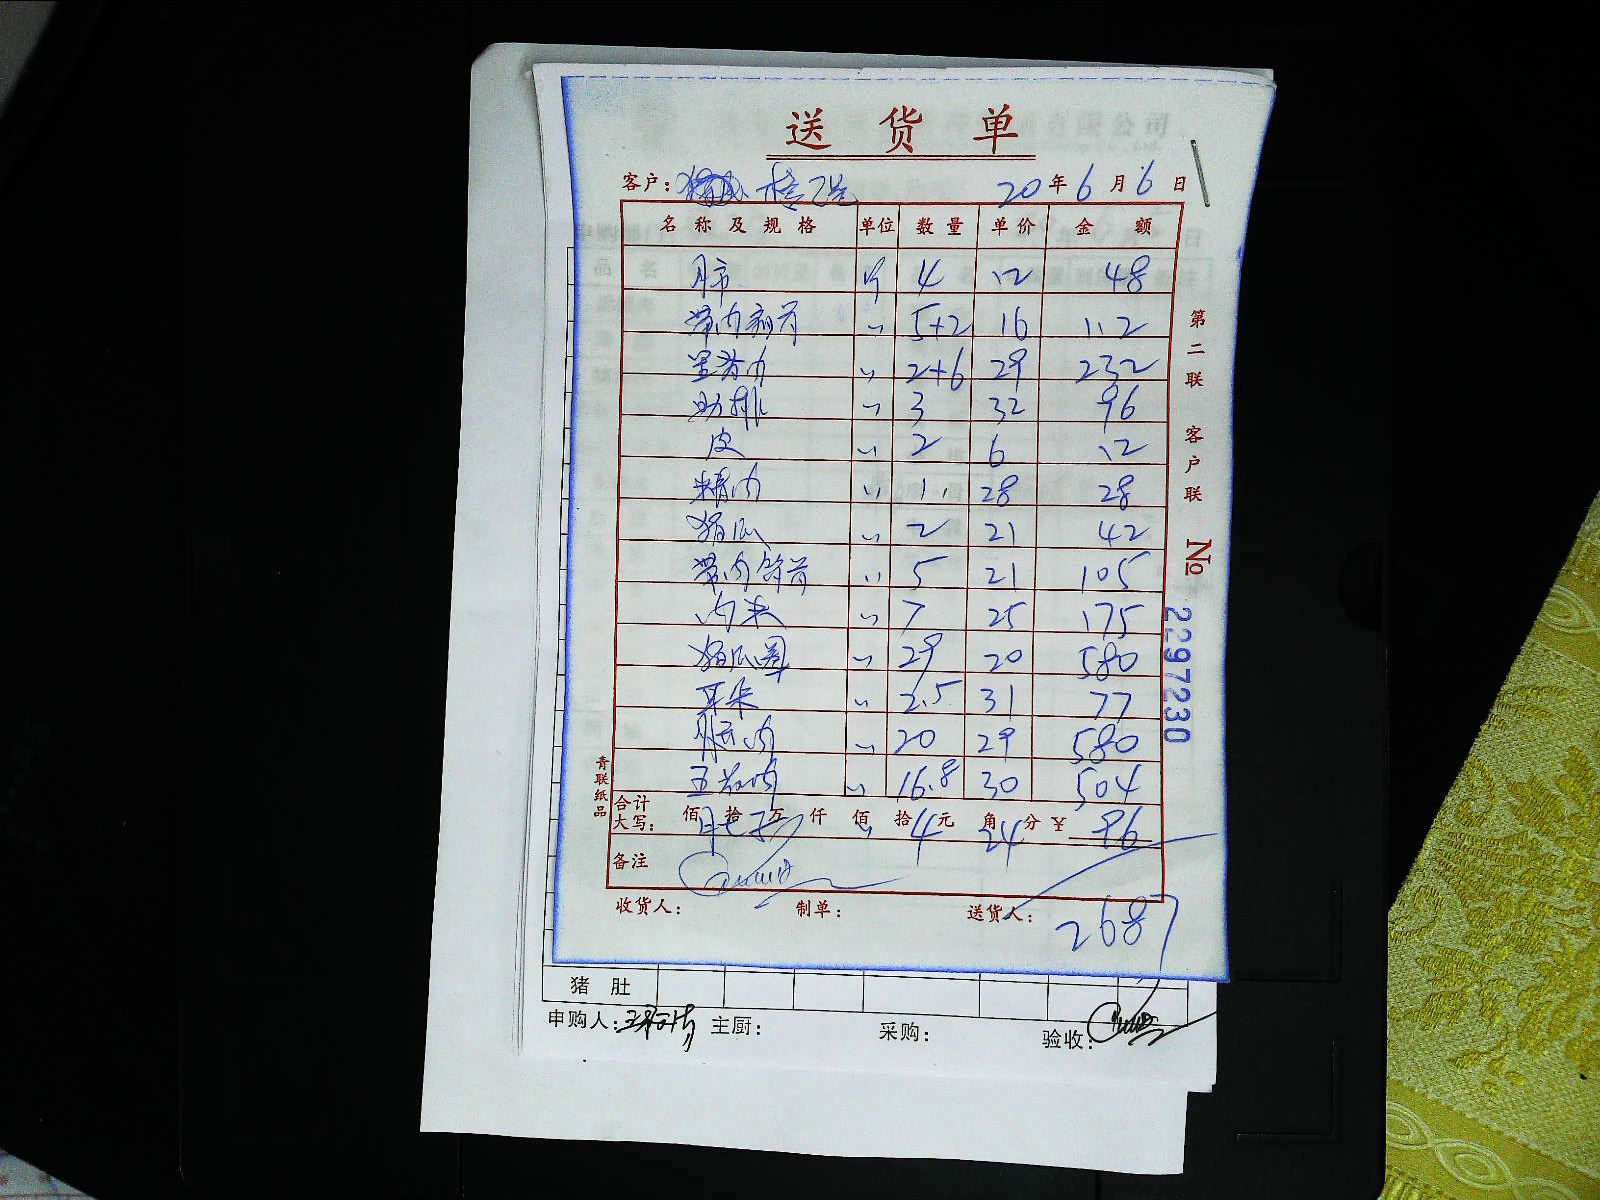 送货单
客户： 20年6月6日
名称及规格 单位 数量 单价 金额
肺 斤 4 12 48
带肉 〃 5+2 16 112
里脊肉 〃 2+6 29 232
助排 〃 3 32 96
皮 〃 2 6 12
精肉 〃 1 28 28
猪 〃 2 21 42
带肉 〃 5 21 105
肉末 〃 7 25 175
猪 〃 29 20 580
耳朵 〃 2.5 31 77
肉 〃 20 29 580
五花肉 〃 16.8 30 504
合计大写： 佰 拾 万 仟 佰 拾 元 角 分 ¥
肚子 〃 4 24 96
备注
收货人： 制单： 送货人：
2687
第二联 客户联 No 2297230
青联纸品
猪肚
申购人： 主厨： 采购： 验收：